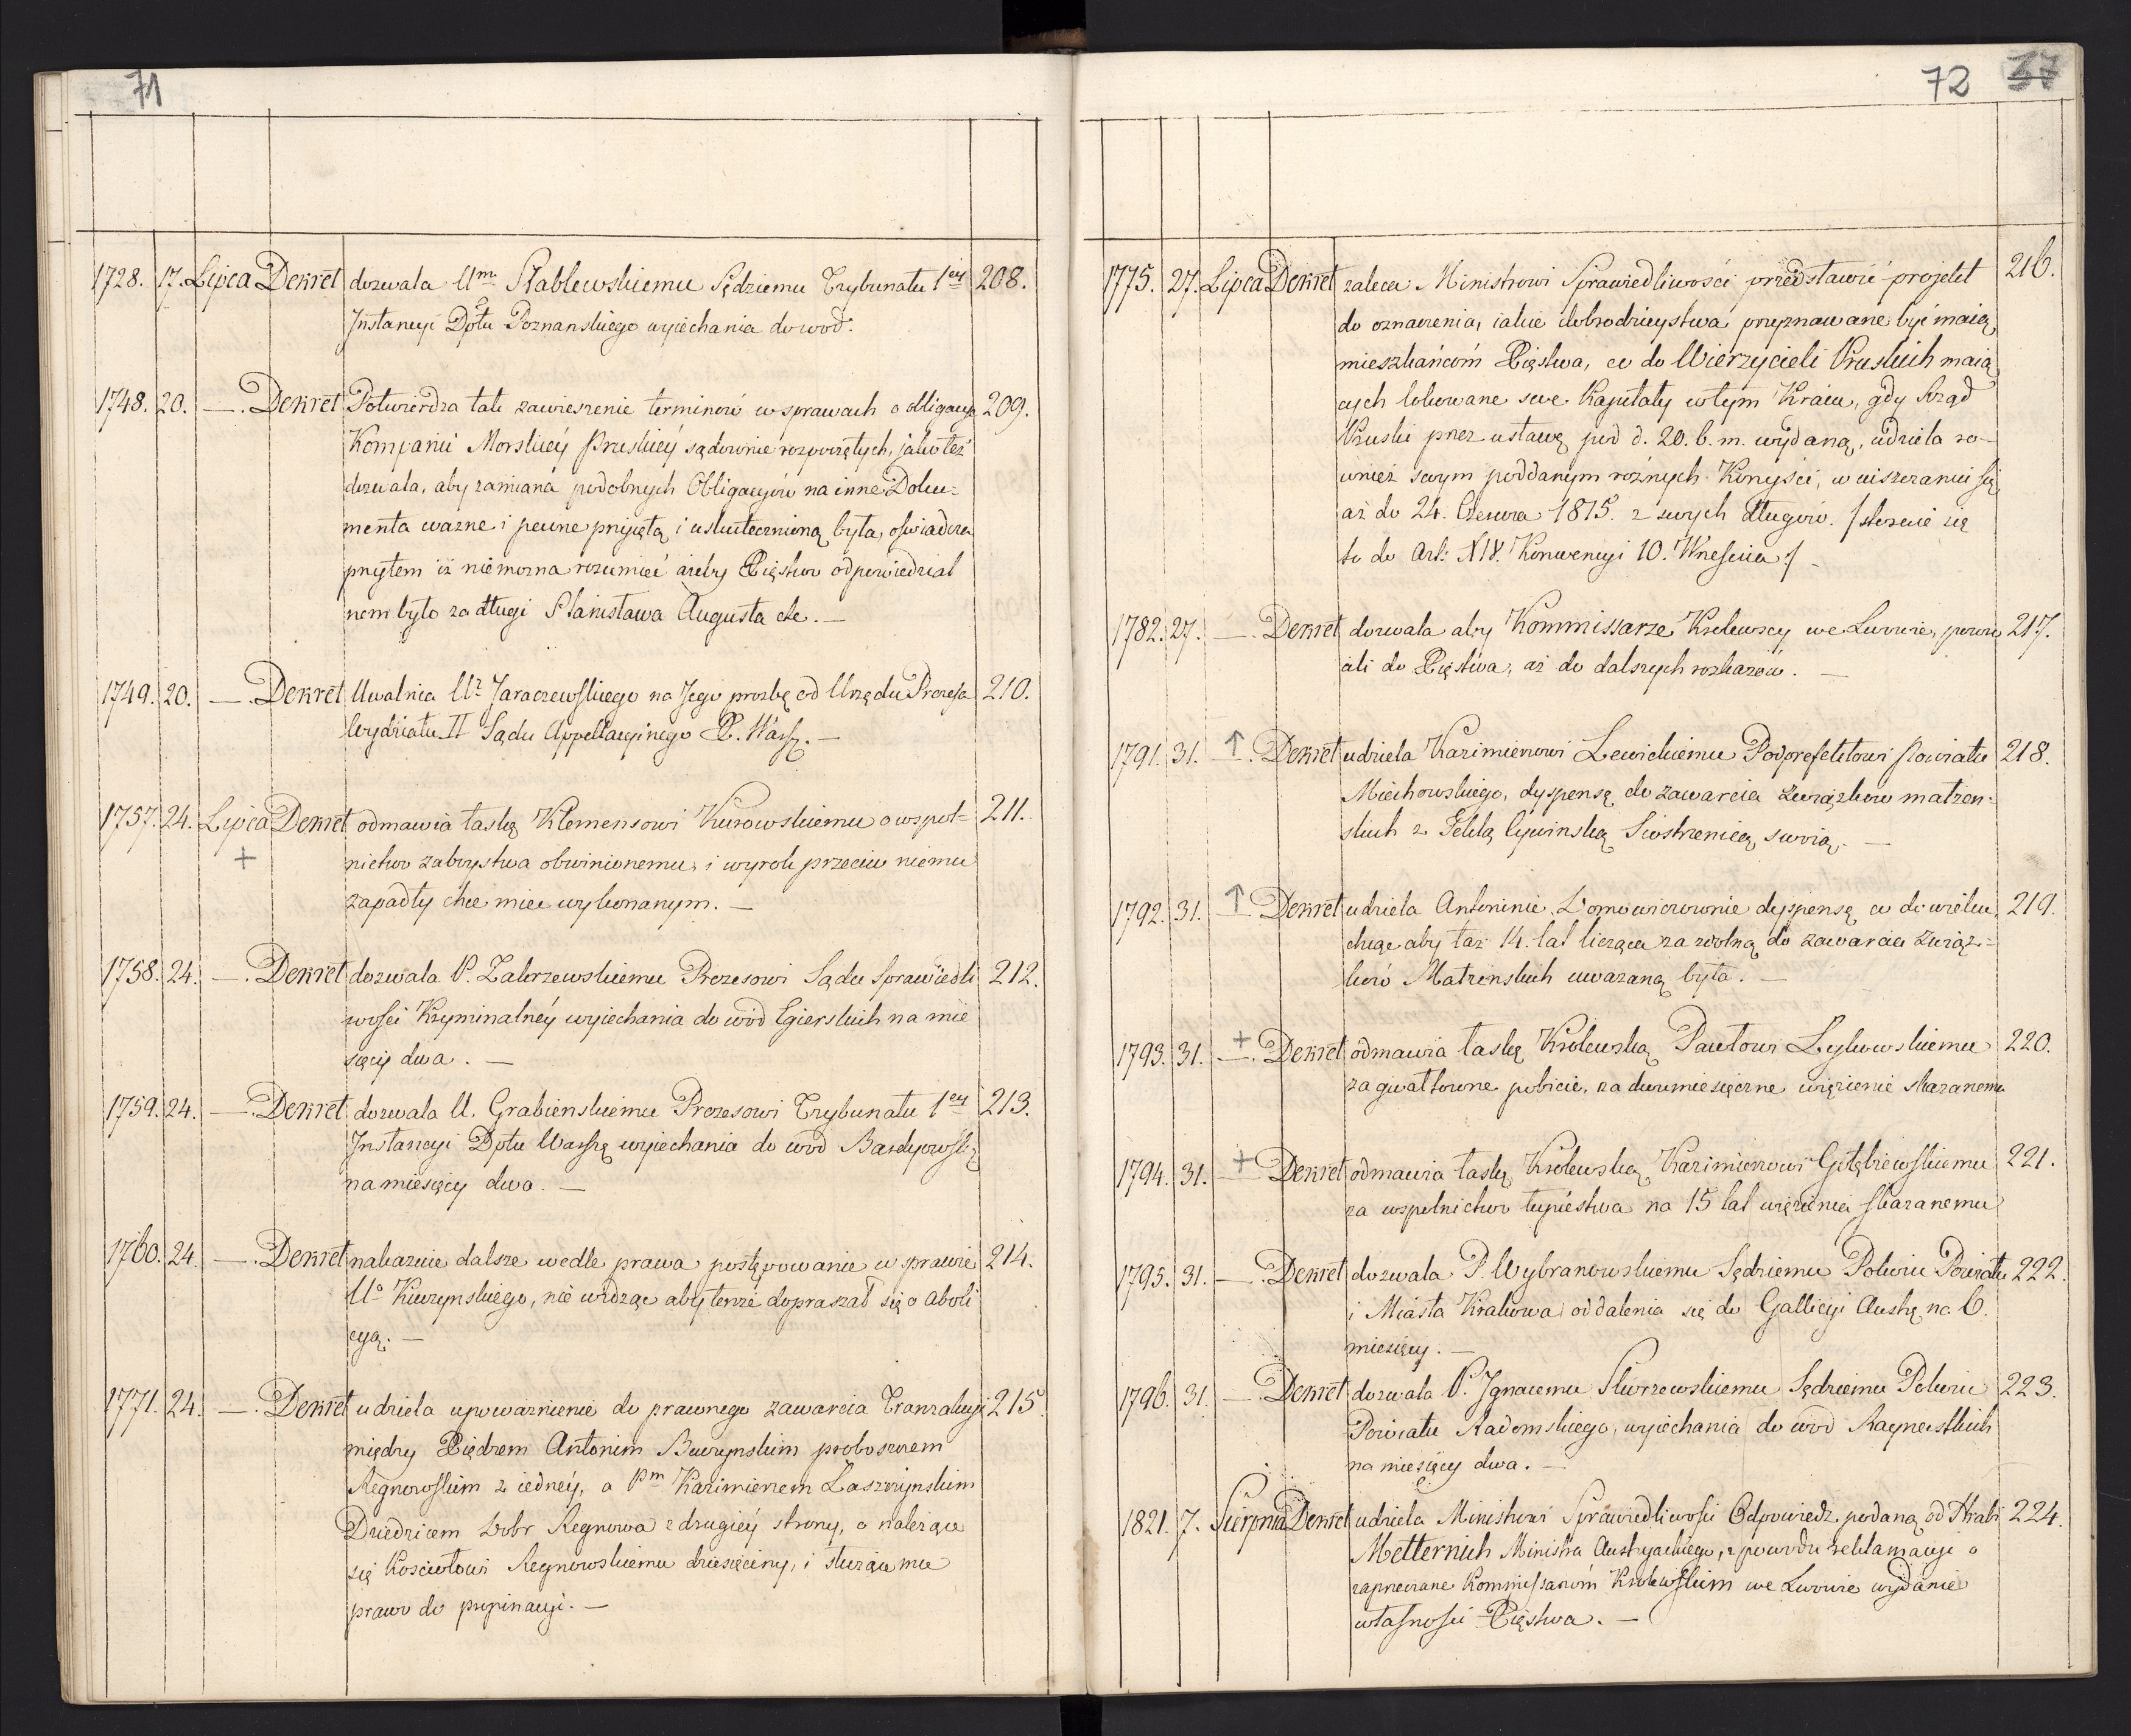 71
1728. 17. Lipca Dekret dozwala Um Stablewskiemu Sędziemu Trybunału 1ey 208.
Instancyi Dptu Poznanskiego wyiechania do wod.
1748. 20. —. Dekret Potwierdza tak zawieszenie terminow w sprawach o obligacye 209.
Kompanii Morskiey Pruskiey sądownie rozpoczętych, jakoteż
dozwala, aby zamiana podobnych Obligacyow na inne Doku=
menta wazne i pewne przyjętą i uskutecznioną była, oswiadcza
przytem iż niemozna rozumieć azeby Xięstwo odpowiedzial
nem było za długi Stanisława Augusta etc. —
1749. 20. —. Dekret Uwalnia Ur Jaraczewskiego na Jego prozbę od Urzędu Prezesa 210.
Wydziału II Sądu Appellacyinego X. Warsz. —
1757. 24. Lipca Dekret odmawia łaskę Klemensowi Kurowskiemu o wspol= 211.
+ nictwo zaboystwa obwinionemu, i wyrok przeciw niemu
zapadły chce miec wykonanym. —
1758. 24. —. Dekret dozwala P. Zakrzewskiemu Prezesowi Sądu Sprawiedli 212.
wosci Kryminalnéy wyiechania do wod Egierskich na mie
sięcy dwa. —
1759. 24. —. Dekret dozwala U. Grabienskiemu Prezesowi Trybunału 1ey 213.
Instancyi Dptu Warszę wyiechania do wod Bardyowsk:
na miesięcy dwa. —
1760. 24. —. Dekret nakazuie dalsze wedle prawa postępowanie w sprawie 214.
Uo Kuczynskiego, nie widząc aby tenże dopraszał się o aboli
cyą. —
1771. 24. —. Dekret udziela upowaznienie do prawnego zawarcia Tranzakcyi 215.
między Xiędzem Antonim Buczynskim proboszczem
Regnowskim z iedney, a Pm Kazimierzem Laszczynskim
Dziedzicem Dobr Regnowa z drugiey strony, o nalezące
się Kosciołowi Regnowskiemu dziesięciny, i służące mu
prawo do propinacyi. —
72 37
1775. 27. Lipca Dekret zaleca Ministrowi Sprawiedliwości przedstawić projekt 216.
do oznaczenia, iakie dobrodzieystwa przyznawane być maią
mieszkańcom Xięstwa, co do Wierzycieli Pruskich maią
cych lokowane swe Kapitały w tym Kraiu, gdy Rząd
Pruski przez ustawę pod d. 20. b. m. wydaną, udziela ro-
wnież swym poddanym rożnych Korzyści, w uiszczaniu się
aż do 24. Czerwca 1815. z swych długow. / stosuie się
to do Art: XIV. Konwencyi 10. Wrzesnia :/
1782. 27. —. Dekret dozwala aby Kommissarze Krolewscy we Lwowie, powro 217.
cili do Xięstwa, aż do dalszych rozkazow. —
1791. 31. ↑ —. Dekret udziela Kazimierzowi Lewickiemu Podprefektowi Powiatu 218.
Miechowskiego, dyspensę do zawarcia związkow małzen-
skich z Teklą Cywinską Siostrzenicą swoią. —
1792. 31. ↑ — Dekret udziela Antoninie Domowiczownie dyspensę co do wieku, 219.
chcąc aby taż 14. lat licząca za zdolną do zawarcia związ=
kow Małzenskich uwazaną była. —
1793. 31. + —. Dekret odmawia łaskę Krolewską Pawłowi Lykowskiemu 220.
za gwałtowne pobicie, na dwumiesięczne więzienie skazanemu
1794. 31. + — Dekret odmawia łaskę Krolewską Kazimierzowi Gołębiewskiemu 221.
za wspolnictwo łupiestwa na 15 lat więzienia skazanemu
1795. 31. —. Dekret dozwala P. Wybranowskiemu Sędziemu Pokoiu Powiatu 222.
i Miasta Krakowa oddalenia się do Gallicyi Austrę na 6.
miesięcy. —
1796. 31. — Dekret dozwala P. Ignacemu Skorzewskiemu Sędziemu Pokoiu 223.
Powiatu Radomskiego, wyiechania do wod
na miesięcy dwa. —
1821. 7. Sierpnia Dekret udziela Ministrowi Sprawiedliwosci Odpowiedz podaną od Hrabi 224.
Metternich Ministra Austryackiego, z powodu reklamacyi o
zaprzeczane Kommissarzom Krolewskim we Lwowie wydanie
własnosci Xięstwa. —